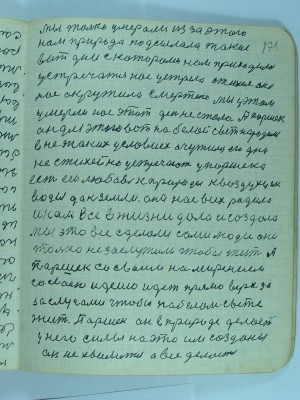 мы только умерали из за этого
нам природа подсилала такие
вит дни с каторами нам приходилос
устречатся нас устрела
нас окружила смертею мы у этом
умерли нас этот ден не стала А паршек
он дел этого вот на белой свет народился
в не таких условиях служил его дни
не стихейно устречают у паршека
ест его любов к природы к воздуху к
воды да к земли. она нас всех радила
и нам все в жизни дала и создала
мы это все сделали сами люди они
только не заслужили чтобы жит А
Паршек со своим намирением
со своею идеею идет прямо верх за
заслугами чтобы на белом свете
жит. Паршек он в природе делает
у него силы на это им созданы
он не хвалится а все делает
171